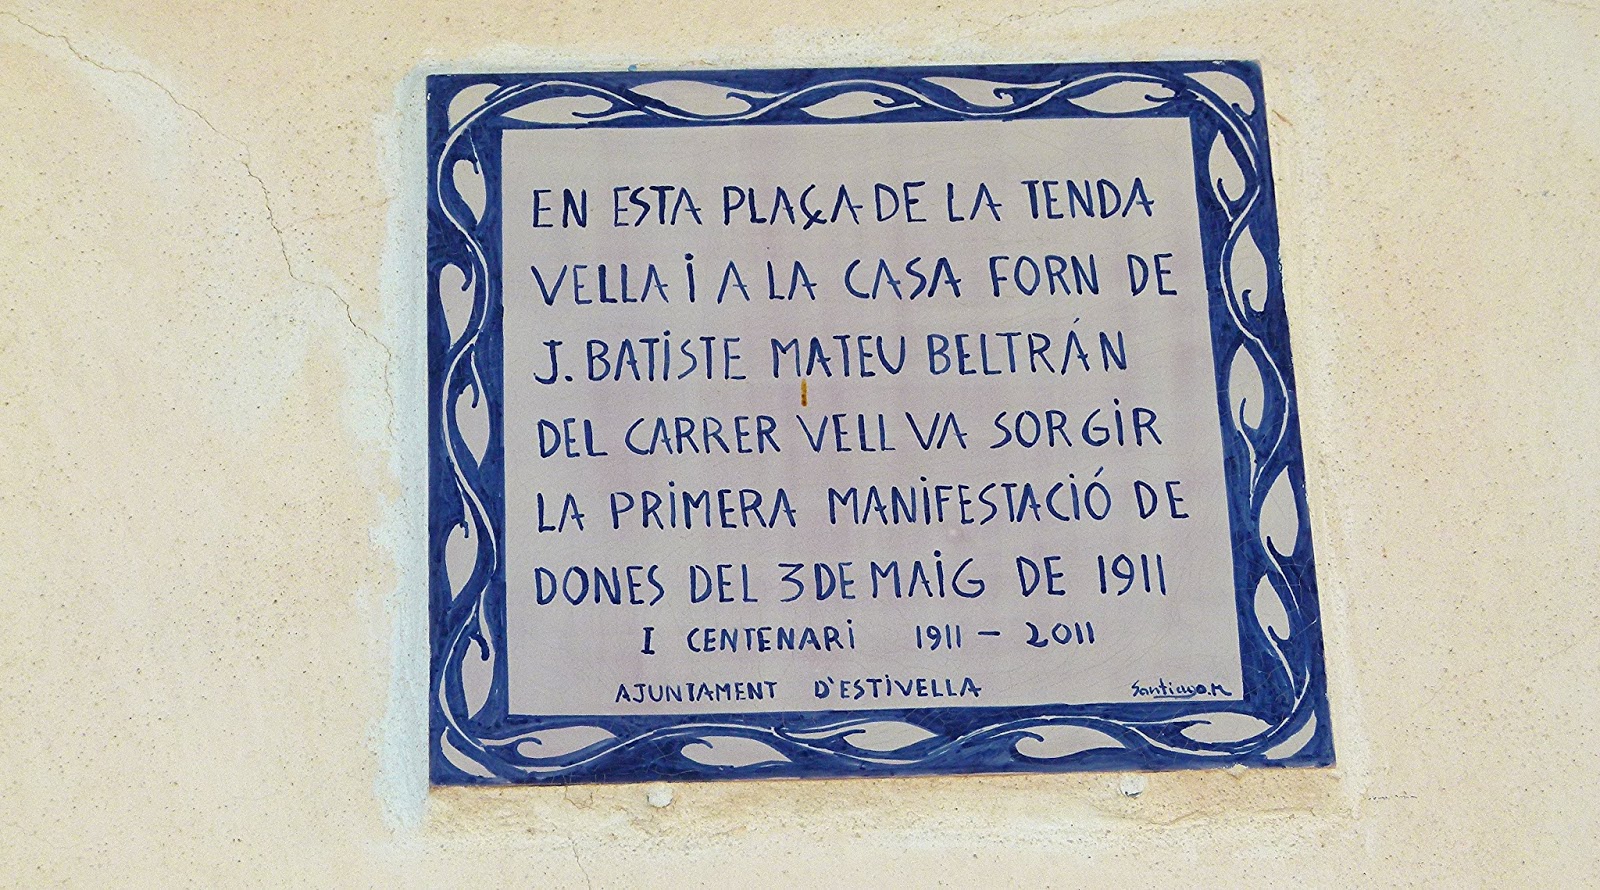 EN ESTA PLAÇA DE LA TENDA
VELLA i A LA CASA FORN DE
J. BATiSTE MATEU BELTRÁN
DEL CARRER VELL VA SORGiR
LA PRiMERA MANiFESTACiÓ DE
DONES DEL 3 DE MAiG DE 1911
I CENTENARi 1911 - 2011
AJUNTAMENT D'ESTiVELLA
Santiago.M